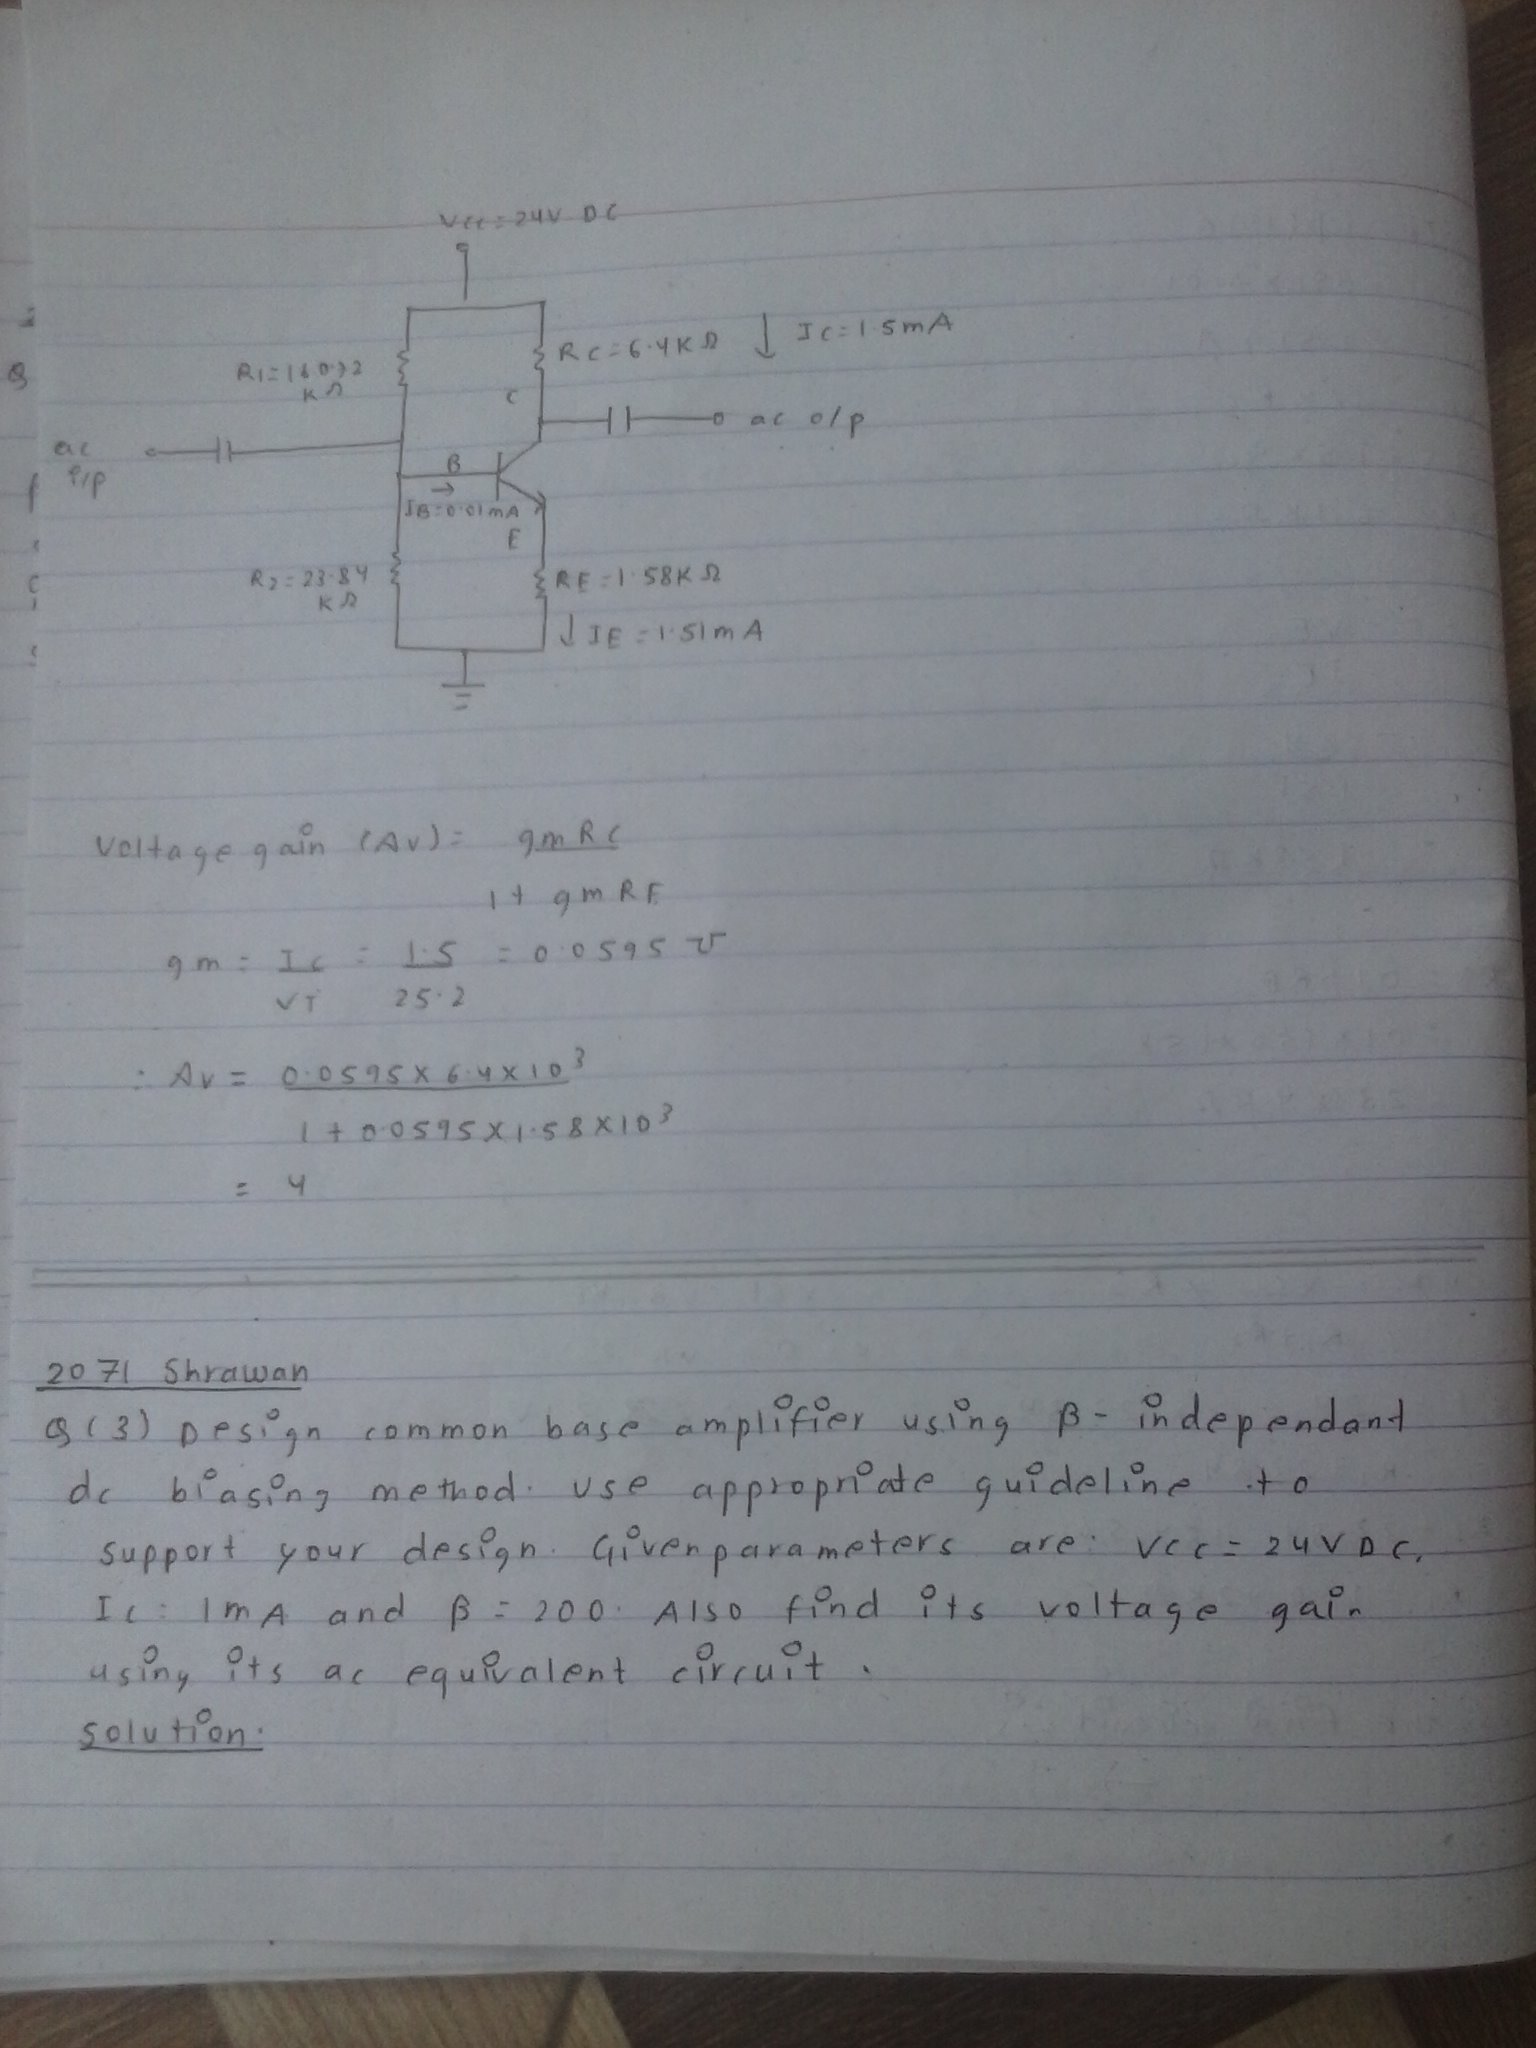 Vcc = 24V DC
RC = 6.4KΩ
IC = 1.5mA
KΩ
C
ac o/p
ac
i/p
B
IB = 0.01mA
E
R2 = 23.84
KΩ
RE = 1.58KΩ
IE = 1.51mA
Voltage gain (Av) = gmRC
1 + gmRE
gm = IC = 1.5 = 0.0595 ℧
VT 25.2
∴ Av = 0.0595 × 6.4 × 10³
1 + 0.0595 × 1.58 × 10³
= 4
2071 Shrawan
Q(3) Design common base amplifier using β - independant
dc biasing method. Use appropriate guideline to
support your design. Given parameters are: Vcc = 24V DC,
Ic = 1mA and β = 200. Also find its voltage gain
using its ac equivalent circuit.
solution: